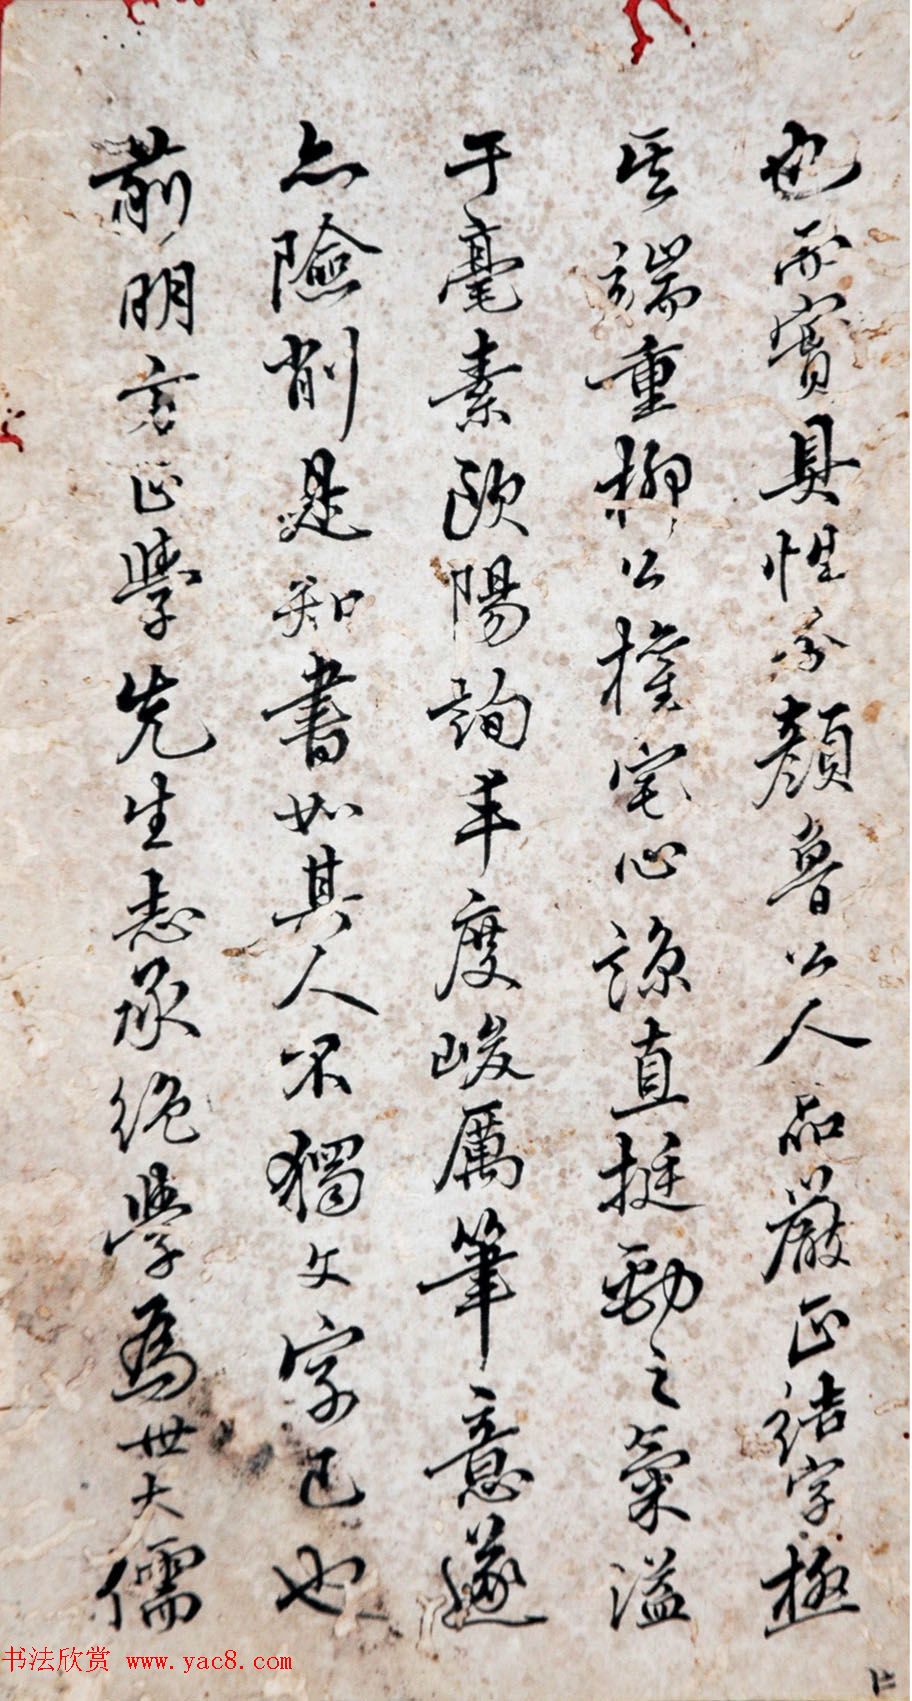 也而實具性分顏魯公人品嚴正結字極
其端重柳公權宅心諒直挺勁之氣溢
于毫素歐陽詢丰度峻厲筆意遂
亦險削是知書如其人不獨文字已也
前明方正學先生志承絕學爲世大儒
书法欣赏 www.yac8.com